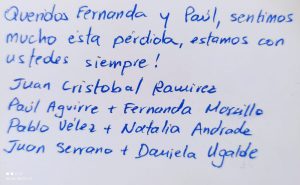 Queridos Fernanda y Paúl, sentimos
mucho ésta pérdida, estamos con
ustedes siempre!
Juan Cristobal Ramirez
Paúl Aguirre + Fernanda Morcillo
Pablo Vélez + Natalia Andrade
Juan Serrano + Daniela Ugalde